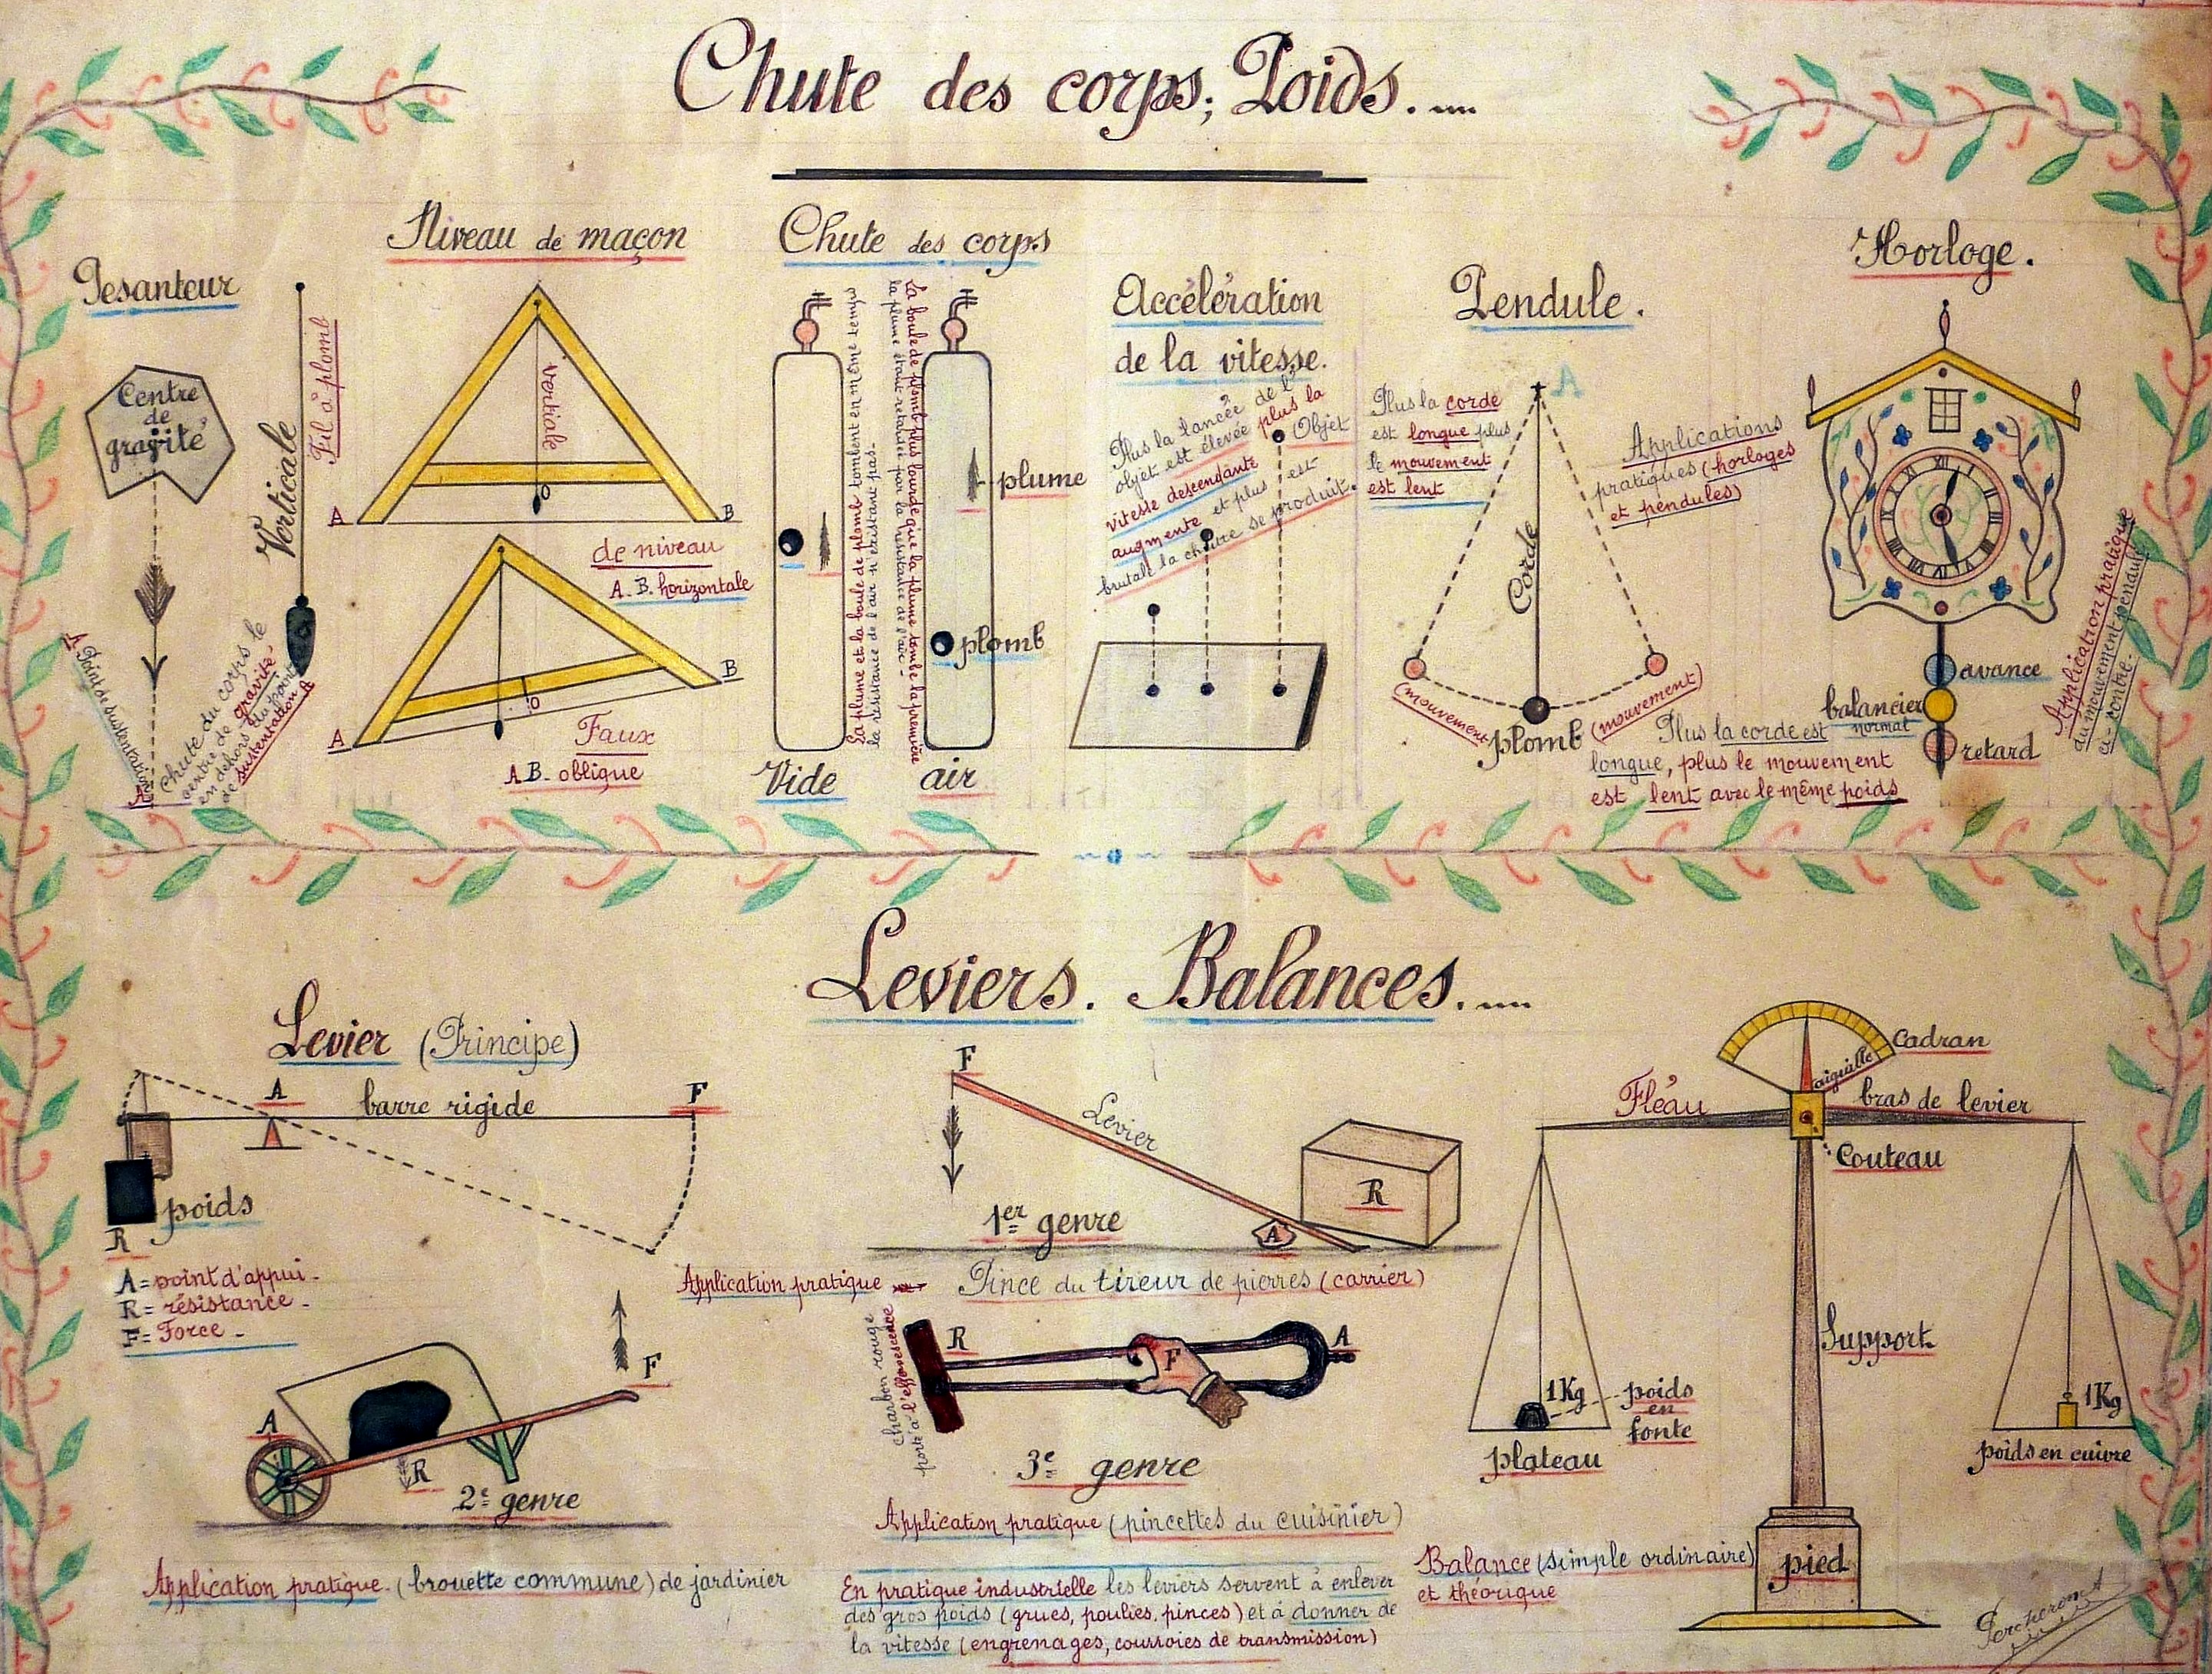 Chute des corps; Poids.
Pesanteur
Centre
de
gravité
Verticale
Fil à plomb
A Point de sustentation
A
Chute du corps le
centre de gravité
en dehors du point
de sustentation A
Niveau de maçon
vertiale
O
A
B
de niveau
A. B. horizontale
O
A
B
Faux
A B - oblique
Chute des corps
La plume et la boule de plomb tombent en même temps
la résistance de l'air n'existant pas.
La boule de plomb plus lourde que la plume tombe la première
la plume étant retardée par la résistance de l'air.
plume
plomb
Vide
air
Accélération
de la vitesse.
Plus la lancée de l'
objet est élevée plus la
vitesse descendante
augmente et plus est
brutale la chûte se produit.
Objet
Pendule.
A
Plus la corde
est longue plus
le mouvement
est lent
Corde
Applications
pratiques (horloges
et pendules)
(mouvement)
plomb
(mouvement)
Plus la corde est
longue, plus le mouvement
est lent avec le même poids
Horloge.
XII
avance
balancier
normal
retard
Application pratique
du mouvement pendule
ci-contre.
Leviers. Balances.
Levier (Principe)
A
barre rigide
F
poids
R
A = point d'appui -
R = résistance -
F = Force -
F
A
R
2e genre
Application pratique. (brouette commune) de jardinier
F
Levier
R
A
1er genre
Application pratique Pince du tireur de pierres (carrier)
charbon rouge
porté à l'efforescence
R
F
A
3e genre
Application pratique (pincettes du cuisinier)
En pratique industrielle les leviers servent à enlever
des gros poids (grues, poulies, pinces) et à donner de
la vitesse (engrenages, courroies de transmission)
Cadran
aiguille
Fléau
bras de levier
Couteau
Support
1Kg
poids
en
fonte
plateau
1Kg
poids en cuivre
Balance (simple ordinaire)
et théorique
pied
Percheron